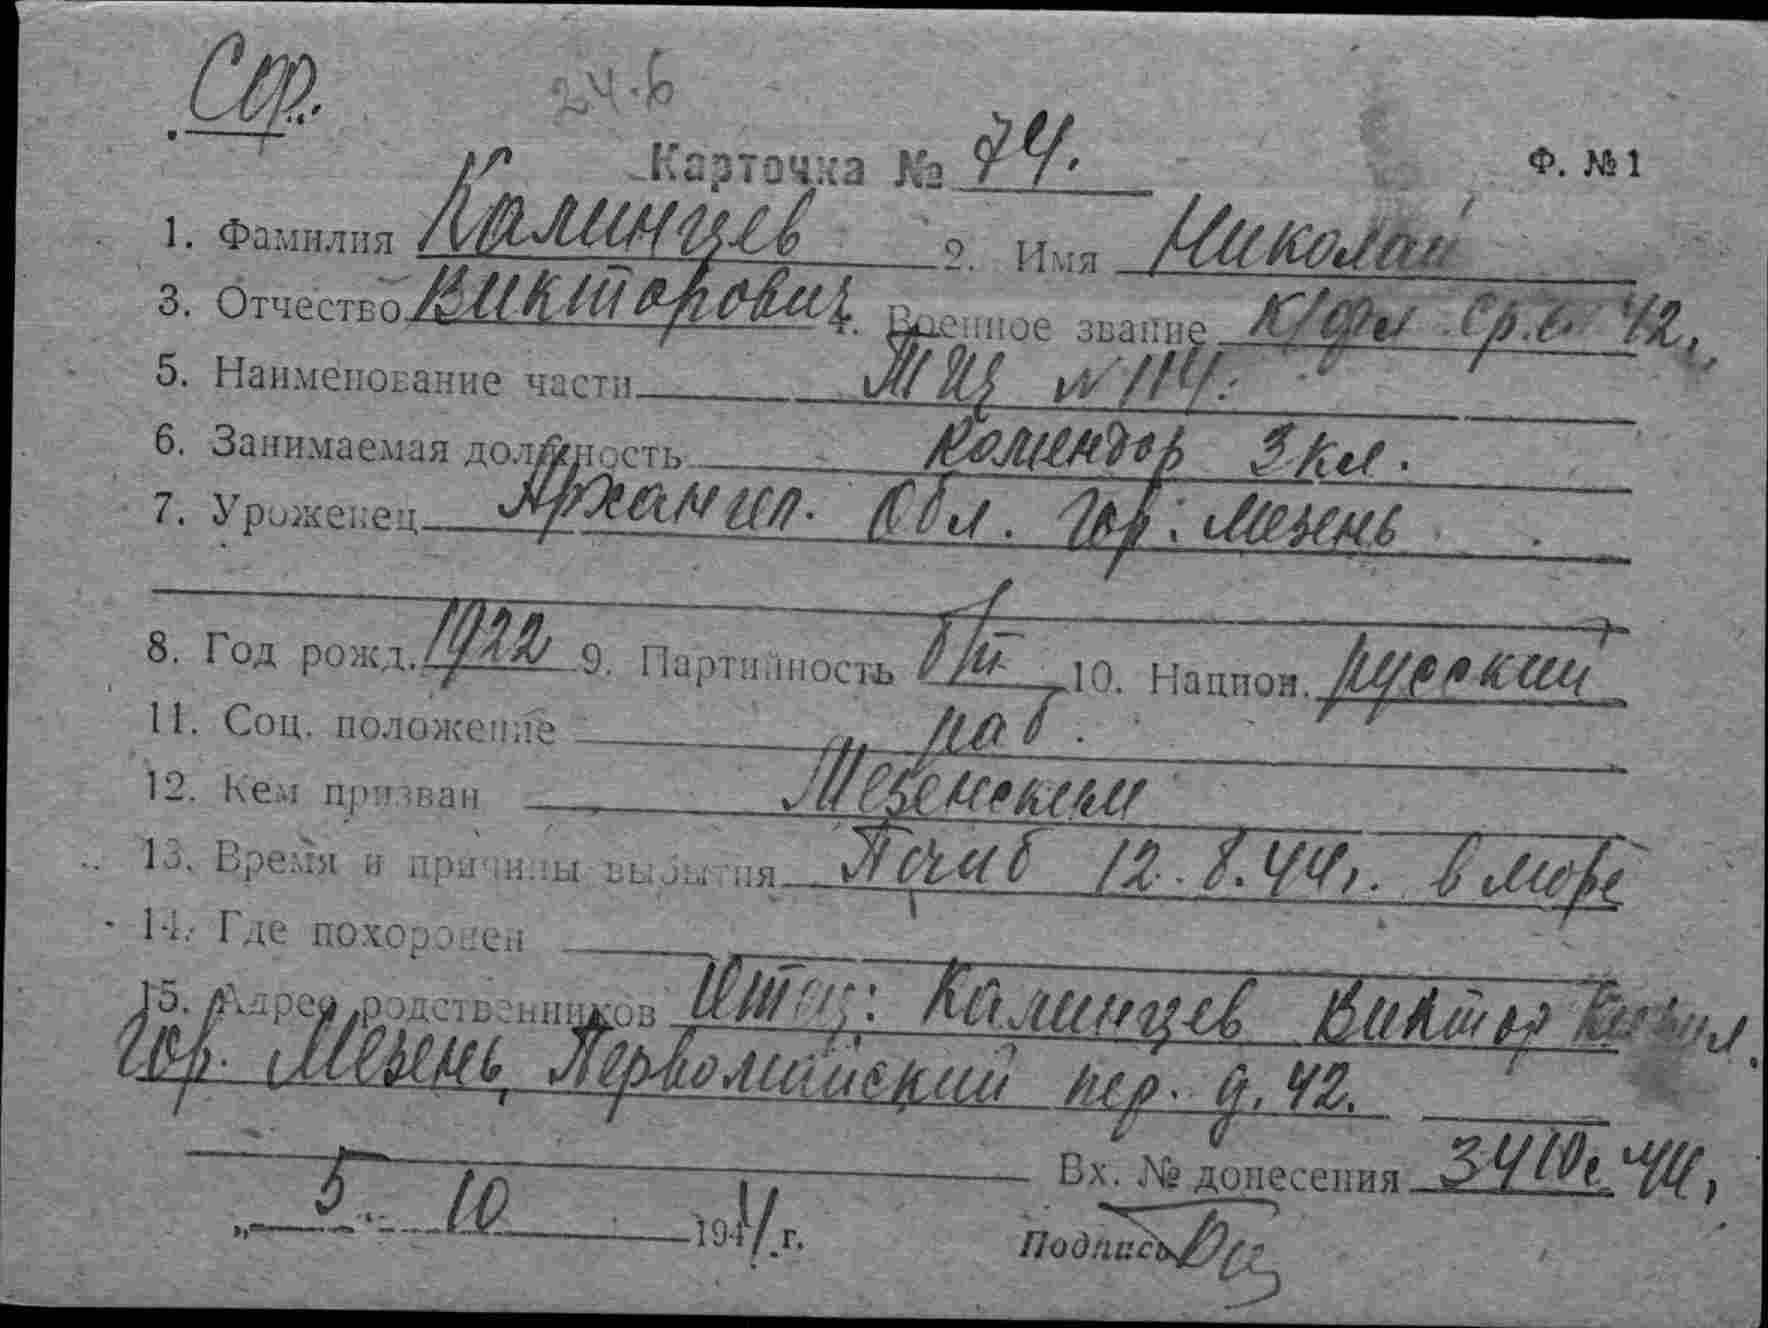 Сор.
24.6
Карточка № 74.
Ф. № 1
1. Фамилия Калинцев 2. Имя Николай
3. Отчество Викторович 4. Военное звание к/фл ср.с. 42г.
5. Наименование части ТЩ № 114.
6. Занимаемая должность комендор 3 кл.
7. Уроженец Архангел. обл. гор. Мезень
8. Год рожд. 1922 9. Партийность б/п 10. Национ. русский
11. Соц. положение раб.
12. Кем призван Мезенским
13. Время и причины выбытия Погиб 12.8.44г. в море
14. Где похоронен
15. Адрес родственников Отец: Калинцев Виктор
гор. Мезень, Первомайский пер. д. 42.
Вх. № донесения 3410с 44г.
„ 5 " 10 1944 г. Подпись